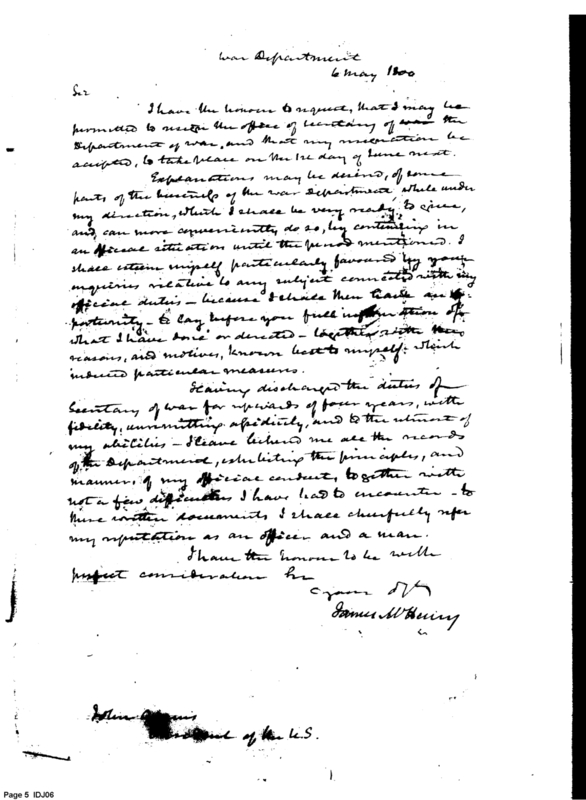 War Department
6 May 1800
Sir
I have the honour to request, that I may be
permitted to resign the office of Secretary of war the
Department of war, and that my resignation be
accepted, to take place on the 1st day of June next.
Explanations may be desired, of some
parts of the business of the war Department while under
my direction, which I shall be very ready to give,
and, can more conveniently do so, by continuing in
an official situation until the period mentioned. I
shall esteem myself particularly favoured by your
inquiries relative to any subject connected with my
official duties – because I shall then have an op-
portunity – to lay before you full information of
what I have done or directed – together with the
reasons, and motives, known best to myself: which
induced particular measures.
Having discharged the duties of
Secretary of war for upwards of four years, with
fidelity, unremitting assiduity, and to the utmost of
my abilities – I leave behind me all the records
of the Department, exhibiting the principles, and
manner, of my official conduct, together with
not a few difficulties I have had to encounter – to
these written documents I shall cheerfully refer
my reputation as an officer and a man.
I have the honour to be with
perfect consideration Sir
your
James McHenry
John Adams
President of the U.S.
Page 5 IDJ06